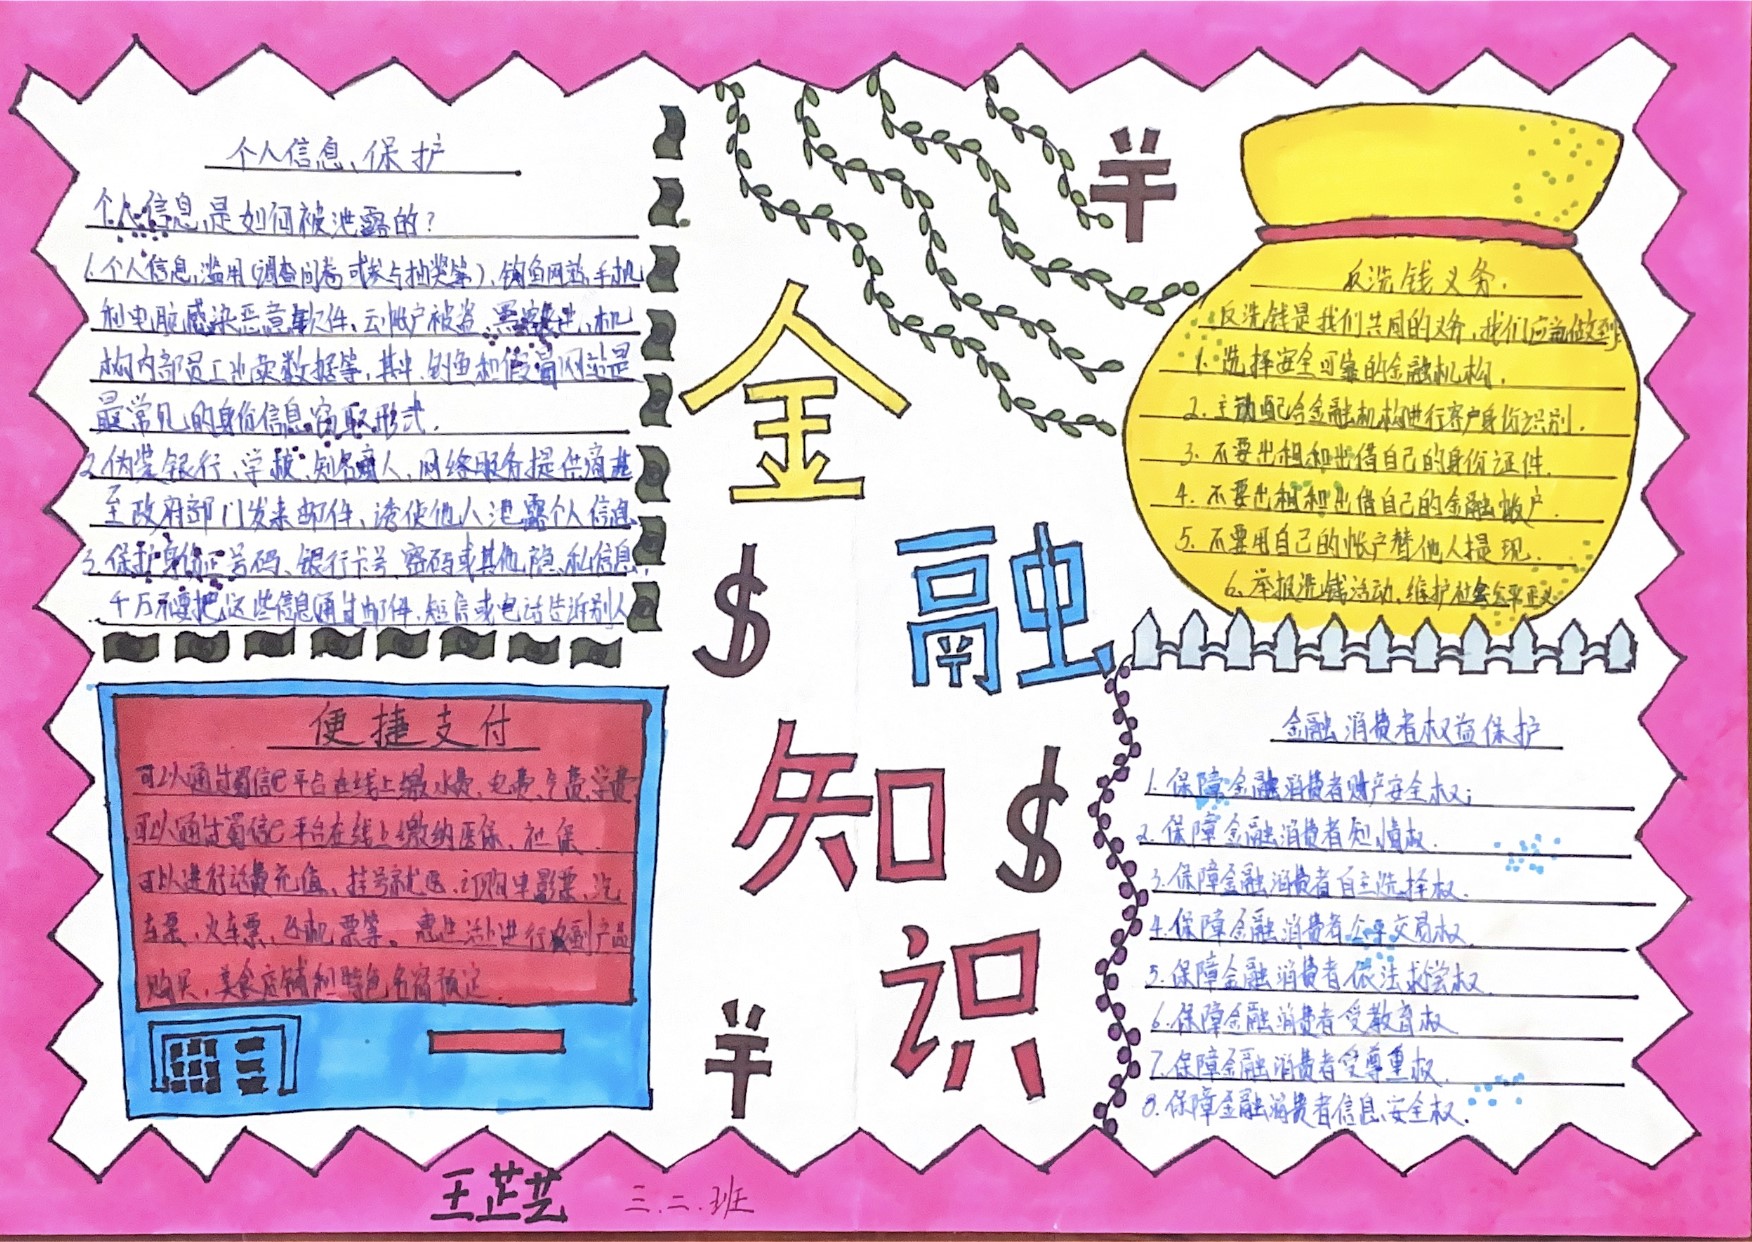 个人信息保护
个人信息是如何被泄露的?
1.个人信息滥用(调查问卷或参与抽奖等)、钓鱼网站、手机
和电脑感染恶意软件、云帐户被盗、黑客攻击、机
构内部员工出卖数据等,其中,钓鱼和假冒网站是
最常见的身份信息窃取形式.
2.伪装银行、学校、知名商人、网络服务提供商甚
至政府部门发来邮件,诱使他人泄露个人信息
3.保护身份证号码、银行卡号、密码或其他隐私信息,
千万不要把这些信息通过邮件、短信或电话告诉别人
便捷支付
可以通过蜀信e平台在线上缴水费、电费、气费、学费
可以通过蜀信e平台在线上缴纳医保、社保.
可以进行话费充值、挂号就医、订购电影票、汽
车票、火车票、飞机票等。惠生活上进行农副产品
购买、美食店铺和特色名宿预定.
金
融
知
识
$
$
反洗钱义务.
反洗钱是我们共同的义务,我们应当做到:
1.选择安全可靠的金融机构.
2.主动配合金融机构进行客户身份识别.
3.不要出租和出借自己的身份证件.
4.不要出租和出借自己的金融帐户.
5.不要用自己的帐户替他人提现.
6.举报洗钱活动,维护社会公平正义
金融消费者权益保护
1.保障金融消费者财产安全权;
2.保障金融消费者知情权.
3.保障金融消费者自主选择权.
4.保障金融消费者公平交易权.
5.保障金融消费者依法求偿权.
6.保障金融消费者受教育权
7.保障金融消费者受尊重权.
8.保障金融消费者信息安全权.
王芷芸 三.二.班